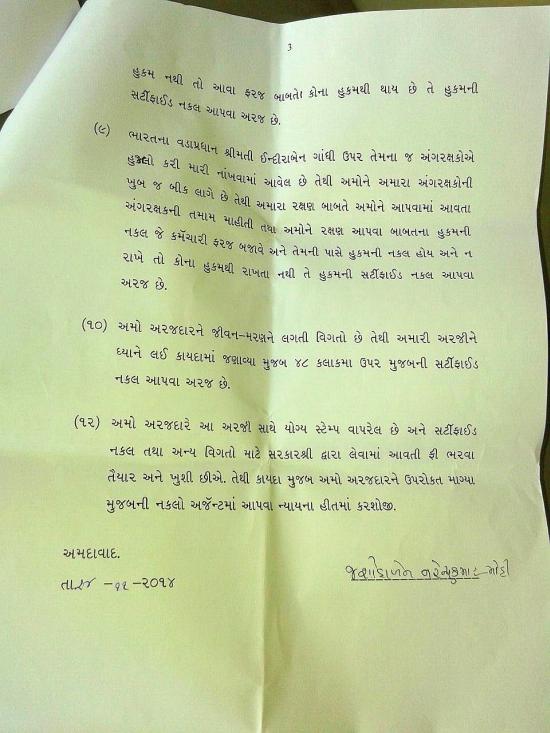 3
હુકમ નથી તો આવા ફરજ બાબતે કોના હુકમથી થાય છે તે હુકમની
સર્ટીફાઈડ નકલ આપવા અરજ છે.
(૯) ભારતના વડાપ્રધાન શ્રીમતી ઈન્દીરાબેન ગાંધી ઉપર તેમના જ અંગરક્ષકોએ
હુમલો કરી મારી નાંખવામાં આવેલ છે તેથી અમોને અમારા અંગરક્ષકોની
ખુબ જ બીક લાગે છે તેથી અમારા રક્ષણ બાબતે અમોને આપવામાં આવતા
અંગરક્ષકની તમામ માહીતી તથા અમોને રક્ષણ આપવા બાબતના હુકમની
નકલ જે કર્મચારી ફરજ બજાવે અને તેમની પાસે હુકમની નકલ હોય અને ન
રાખે તો કોના હુકમથી રાખતા નથી તે હુકમની સર્ટીફાઈડ નકલ આપવા
અરજ છે.
(૧૦) અમો અરજદારને જીવન-મરણને લગતી વિગતો છે તેથી અમારી અરજીને
ધ્યાને લઈ કાયદામાં જણાવ્યા મુજબ ૪૮ કલાકમા ઉપર મુજબની સર્ટીફાઈડ
નકલ આપવા અરજ છે.
(૧૨) અમો અરજદારે આ અરજી સાથે યોગ્ય સ્ટેમ્પ વાપરેલ છે અને સર્ટીફાઈડ
નકલ તથા અન્ય વિગતો માટે સરકારશ્રી દ્વારા લેવામાં આવતી ફી ભરવા
તૈયાર અને ખુશી છીએ. તેથી કાયદા મુજબ અમો અરજદારને ઉપરોકત માગ્યા
મુજબની નકલો અર્જન્ટમાં આપવા ન્યાયના હીતમાં કરશોજી.
અમદાવાદ.
તા -૧૧-૨૦૧૪
જશોદાબેન નરેન્દ્રકુમાર મોદી